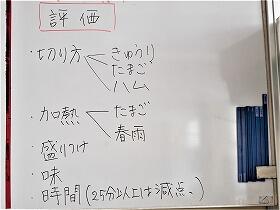 評価
・切り方
きゅうり
たまご
ハム
・加熱
たまご
春雨
・盛りつけ
・味
・時間(25分以上は減点。)